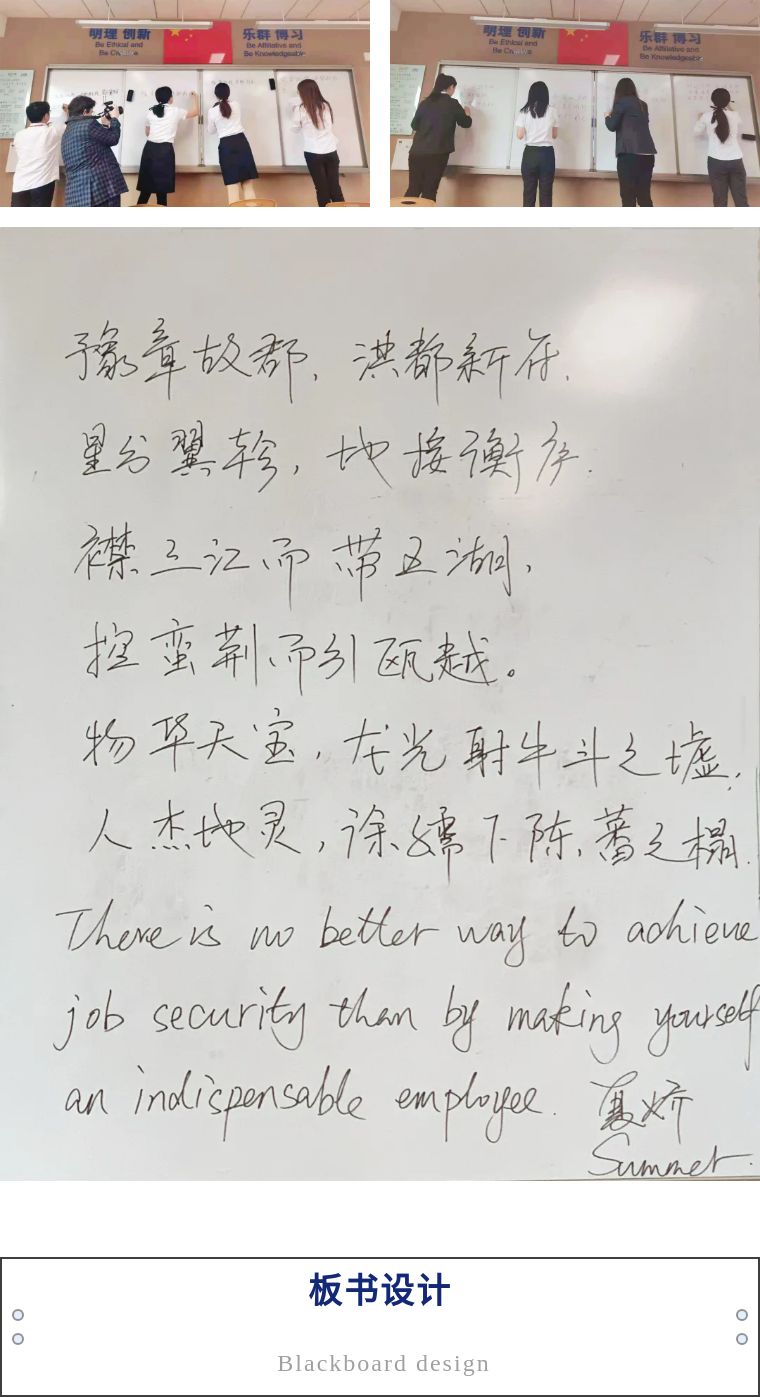 明理 创新
Be Ethical and
Be Creative
乐群 博习
Be Affiliative and
Be Knowledgeable
明理 创新
Be Ethical and
Be Creative
乐群 博习
Be Affiliative and
Be Knowledgeable
豫章故郡，洪都新府.
星分翼轸，地接衡庐.
襟三江而带五湖，
控蛮荆而引瓯越。
物华天宝，龙光射牛斗之墟；
人杰地灵，徐孺下陈蕃之榻.
There is no better way to achieve
job security than by making yourself
an indispensable employee.
夏娇
Summer.
板书设计
Blackboard design